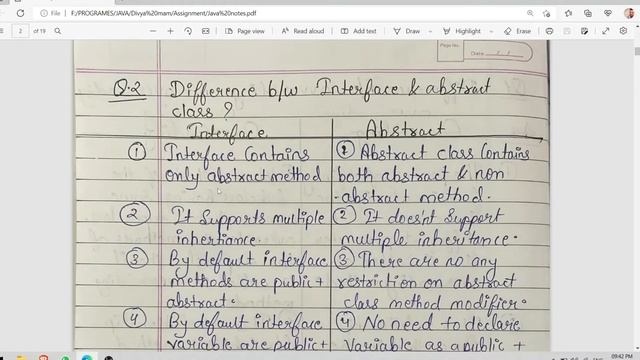 File F:/PROGRAMES/JAVA/Divya%20mam/Assignment/Java%20notes.pdf
2 of 19 Page view Read aloud Add text Draw Highlight Erase
Page No.
Date
Q.2 Difference b/w Interface & abstract
class ?
Interface Abstract
① Interface Contains ① Abstract class Contains
only abstract method both abstract & non
abstract method.
② It Supports multiple ② It does'nt Support
inhertiance. multiple inheritance.
③ By default interface ③ There are no any
methods are public + restriction on abstract
abstract. class method modifier.
④ By default interface ④ No need to declare
variable are public + Variable as a public +
ENG 09:42 PM